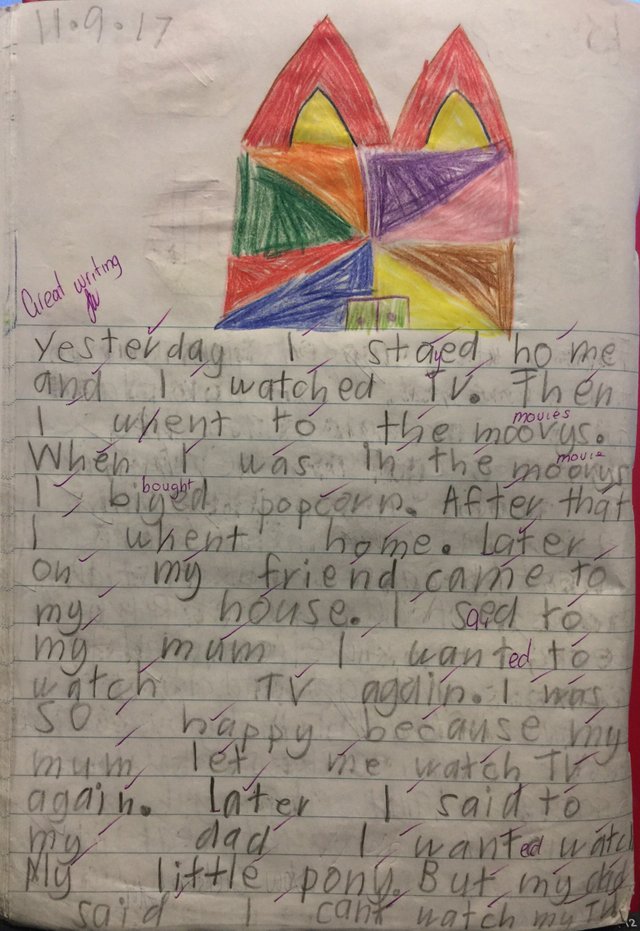 11.9.17
Great writing
yesterday I stayed home
and I watched TV. Then
I whent to the moovys.
movies
When I was in the moovys
movie
I biyed popcorn. After that
bought
I whent home. Later
on my friend came to
my house. I saed to
my mum I wanted to
watch TV again. I was
so happy because my
mum let me watch TV
again. Later I said to
my dad I wanted watch
My little pony. But my dad
said I cant watch my